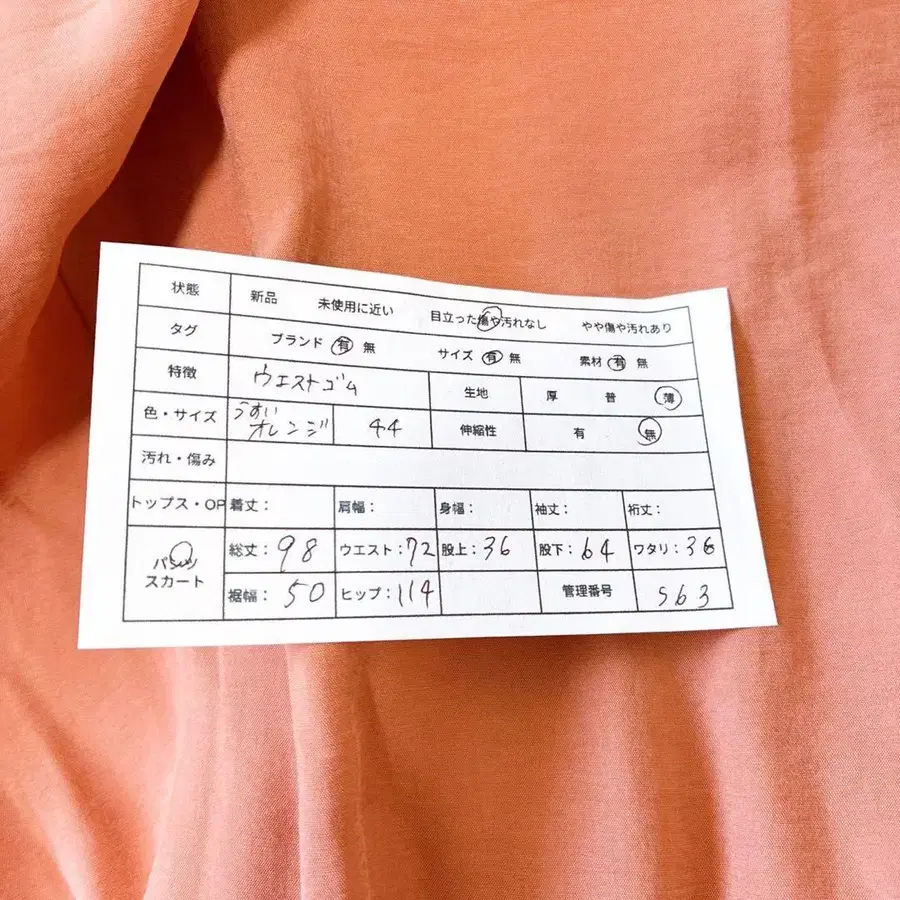 状態 新品 未使用に近い 目立った傷や汚れなし やや傷や汚れあり
タグ ブランド 有 無 サイズ 有 無 素材 有 無
特徴 ウエストゴム 生地 厚 普 薄
色・サイズ うすいオレンジ 44 伸縮性 有 無
汚れ・傷み
トップス・OP 着丈： 肩幅： 身幅： 袖丈： 裄丈：
パンツ 総丈：98 ウエスト：72 股上：36 股下：64 ワタリ：36
スカート 裾幅：50 ヒップ：114 管理番号 S63